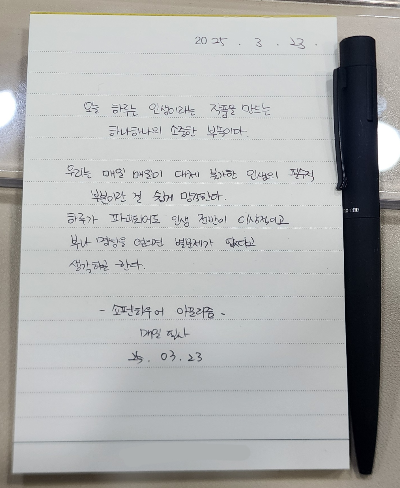 2025. 3. 23.
오늘 하루는 인생이라는 작품을 만드는
하나하나의 소중한 부품이다.
우리는 매일 매일이 대체 불가한 인생의 필수적
부분이란 걸 쉽게 망각한다.
하루가 파괴되어도 인생 전반이 이상적이고
부나 명성을 얻으면 별 문제가 없다고
생각하곤 한다.
- 쇼펜하우어 아포리즘 -
매일 필사
25. 03. 23